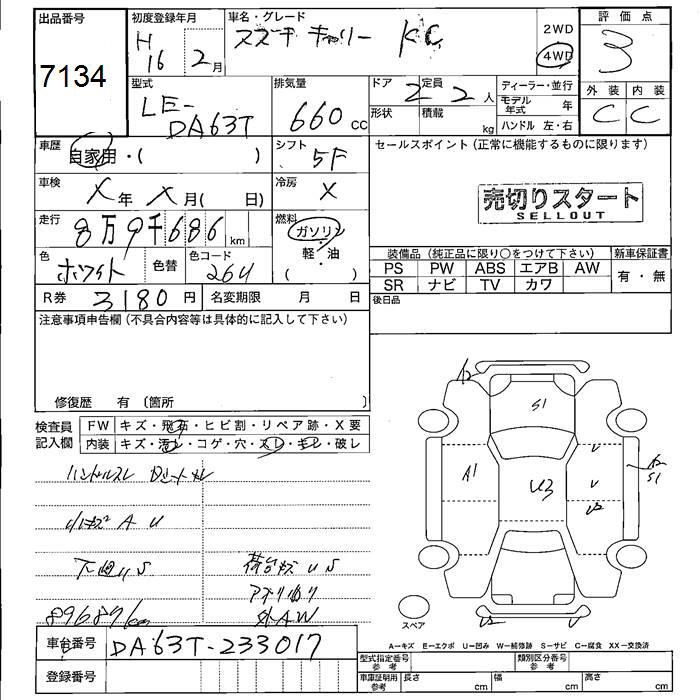 出品番号
7134
初度登録年月
H16 2月
車名・グレード
スズキ キャリー KC
2WD
4WD
評価点
3
外装 内装
C C
型式
LE-
DA63T
排気量
660 cc
ドア 2
定員 2人
形状
積載 kg
ディーラー・並行
モデル年式 年
ハンドル 左・右
車歴
自家用・( )
シフト
5F
車検
X年 X月( 日)
冷房
X
走行
8万9千686km
燃料
ガソリン
軽・油
( )
色
ホワイト
色替
色コード
26U
R券 3180円
名変期限 月 日
セールスポイント(正常に機能するものに限ります)
売切りスタート
SELLOUT
装備品(純正品に限り○をつけて下さい)
新車保証書
PS PW ABS エアB AW
SR ナビ TV カワ
有・無
後日品
注意事項申告欄(不具合内容等は具体的に記入して下さい)
修復歴 有〔箇所 〕
検査員
記入欄
FW キズ・飛石・ヒビ割・リペア跡・X要
内装 キズ・汚レ・コゲ・穴・スレ・キレ・破レ
ハンドルスレ
A U
下廻りS
荷台 U S
外AW
89687km
車台番号 DA63T-233017
登録番号
A2
S1
A1
U3
U
U
U2
A2
S1
U2
U
スペア
A=キズ E=エクボ U=凹み W=補修跡 S=サビ C=腐食 XX=交換済
型式指定番号
参考
類別区分番号
参考
車庫証明用
参考
長さ cm
幅 cm
高さ cm